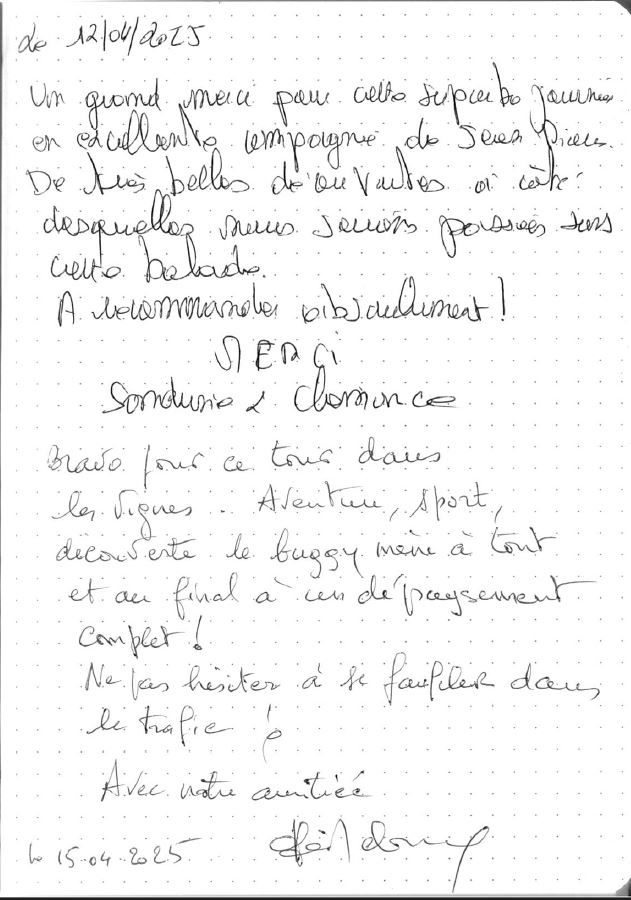 Le 12/04/2025
Un grand merci pour cette superbe journée
en excellente compagnie de Jean Pierre.
De très belles découvertes à côté
desquelles nous serions passées sans
cette balade.
A recommander absolument !
MERCI
& Clémence
Bravo pour ce tour dans
les vignes. Aventure, sport,
découverte le buggy mène à tout
et au final à un dépaysement
complet !
Ne pas hésiter à se faufiler dans
le trafic !
Avec notre amitiéé
le 15-04-2025